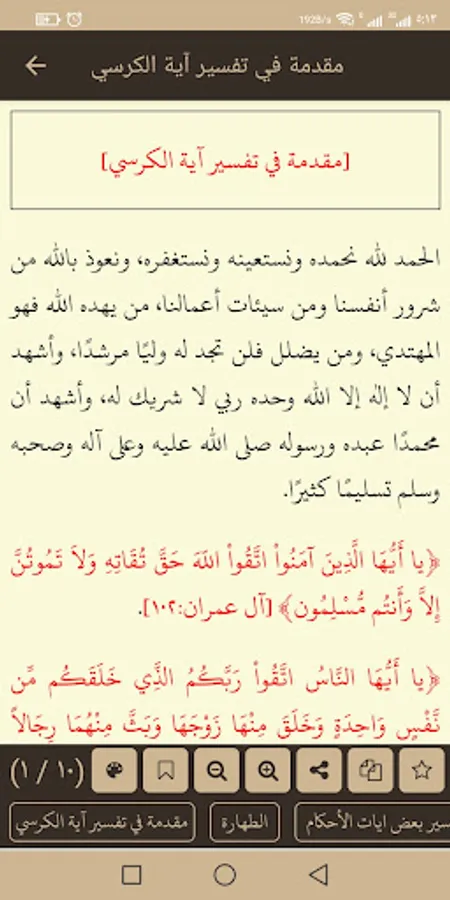 192B/s ٥:١٣
مقدمة في تفسير آية الكرسي
[مقدمة في تفسير آية الكرسي]
الحمد لله نحمده ونستعينه ونستغفره، ونعوذ بالله من
شرور أنفسنا ومن سيئات أعمالنا، من يهده الله فهو
المهتدي، ومن يضلل فلن تجد له وليًا مرشدًا، وأشهد
أن لا إله إلا الله وحده ربي لا شريك له، وأشهد أن
محمدًا عبده ورسوله صلى الله عليه وعلى آله وصحبه
وسلم تسليمًا كثيرًا.
﴿يا أَيُّهَا الَّذِينَ آمَنُواْ اتَّقُواْ اللهَ حَقَّ تُقَاتِهِ وَلاَ تَمُوتُنَّ
إِلاَّ وَأَنتُم مُّسْلِمُون﴾ [آل عمران:١٠٢].
﴿يا أَيُّهَا النَّاسُ اتَّقُواْ رَبَّكُمُ الذَّي خَلَقَكُم مِّن
نَّفْسٍ وَاحِدَةٍ وَخَلَقَ مِنْهَا زَوْجَهَا وَبَثَّ مِنْهُمَا رِجَالاً
(١ / ١٠)
سير بعض ايات الأحكام
الطهارة
مقدمة في تفسير آية الكرسي